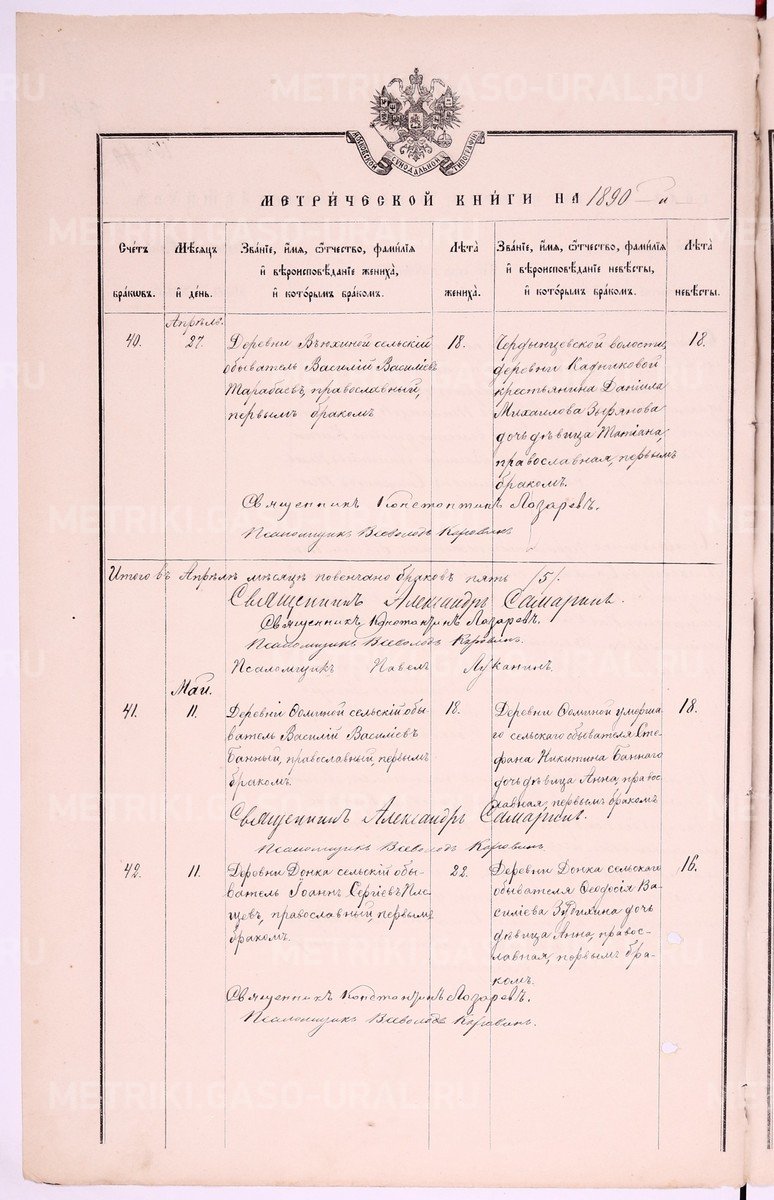 МОСКОВСКОЙ СѴНОДАЛЬНОЙ ТИПОГРАФІИ
МЕТРИ́ЧЕСКОЙ КНИ́ГИ НА 1890
Сче́тъ бра́кѡвъ.
Мѣ́сѧцъ и҆ де́нь.
Зва́нїе, и҆́мѧ, ѻ҆́тчество, фамѝлїѧ и҆ вѣроисповѣ́данїе жениха̀, и҆ кото́рымъ бра́комъ.
Лѣ́та жениха̀.
Зва́нїе, и҆́мѧ, ѻ҆́тчество, фамѝлїѧ и҆ вѣроисповѣ́данїе невѣ́сты, и҆ кото́рымъ бра́комъ.
Лѣ́та невѣ́сты.
Апрѣль.
40.
27.
Деревни сельскій
обыватель Василій Василіевъ
православный,
первымъ бракомъ
18.
волости,
деревни Кадниковой
крестьянина Даніила
Михаилова Зырянова
дочь дѣвица Татіана,
православная, первымъ
бракомъ.
18.
Священникъ Константинъ Лазаревъ.
Псаломщикъ Всеволодъ Коровинъ
Итого въ Апрѣлѣ мѣсяцѣ повенчано браковъ пять /5/.
Священникъ Александръ Самаринъ.
Священникъ Константинъ Лазаревъ.
Псаломщикъ Всеволодъ Коровинъ.
Псаломщикъ Павелъ Луканинъ.
Май.
41.
11.
Деревни Ѳоминой сельскій обы-
ватель Василій Василіевъ
Банный, православный, первымъ
бракомъ.
18.
Деревни Ѳоминой умерша-
го сельскаго обывателя Сте-
фана Никитина Баннаго
дочь дѣвица Анна, правос-
лавная, первымъ бракомъ
18.
Священникъ Александръ Самаринъ.
Псаломщикъ Всеволодъ Коровинъ
42.
11.
Деревни Донка сельскій обы-
ватель Іоаннъ Сергіевъ Пле-
щевъ, православный, первымъ
бракомъ.
22.
Деревни Донка сельскаго
обывателя Ѳеодосія Ва-
силіева дочь
дѣвица Анна, правос-
лавная, первымъ бра-
комъ.
16.
Священникъ Константинъ Лазаревъ.
Псаломщикъ Всеволодъ Коровинъ.
METRIKI.GASO-URAL.RU